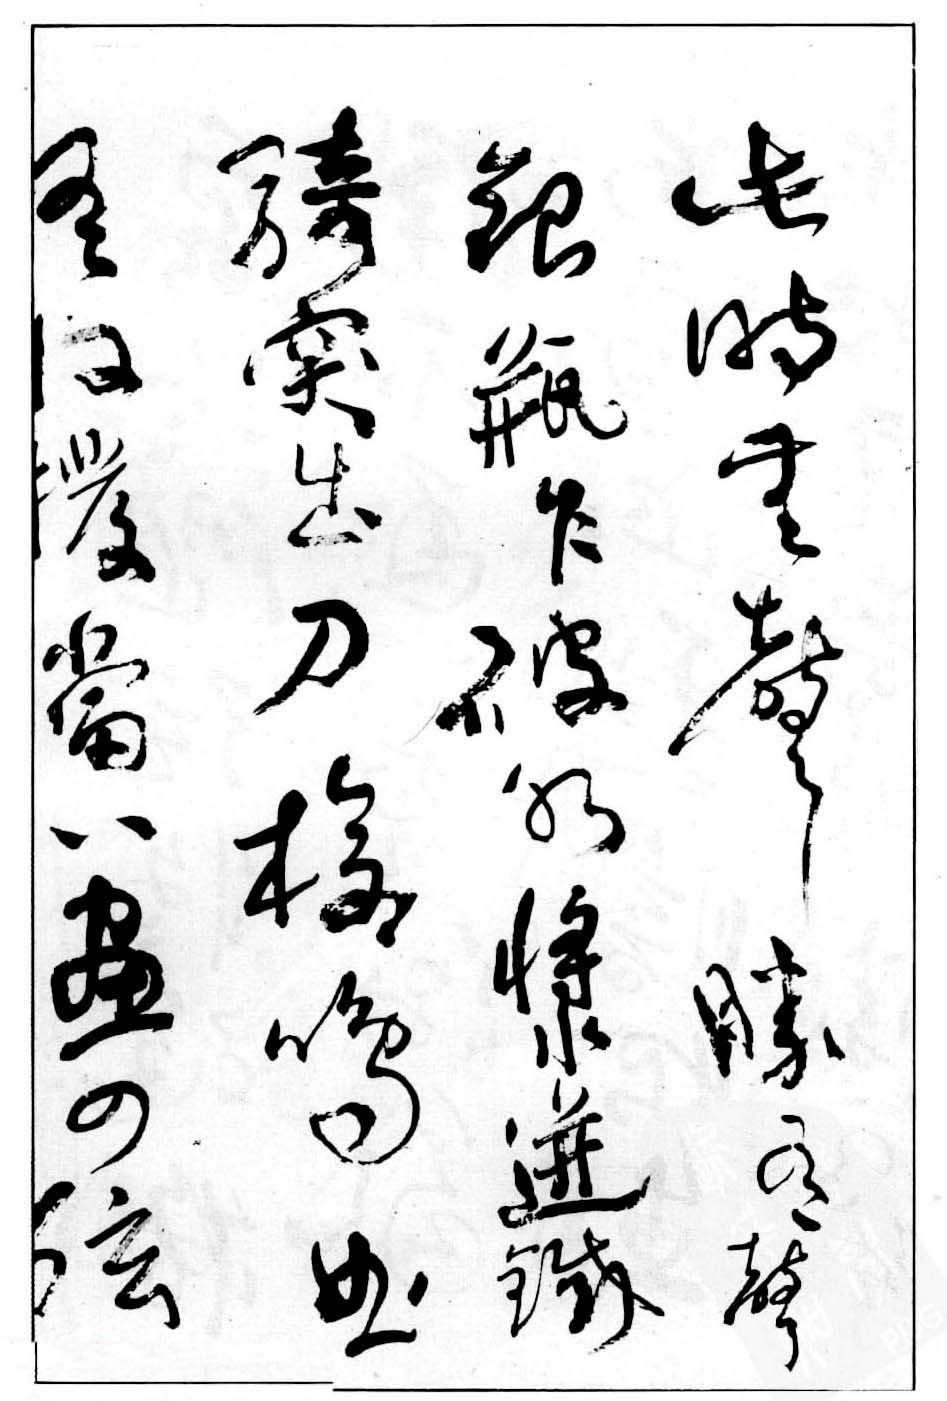 此時無聲勝有聲
銀瓶乍破水漿迸鐵
騎突出刀槍鳴曲
終收撥當心畫四弦